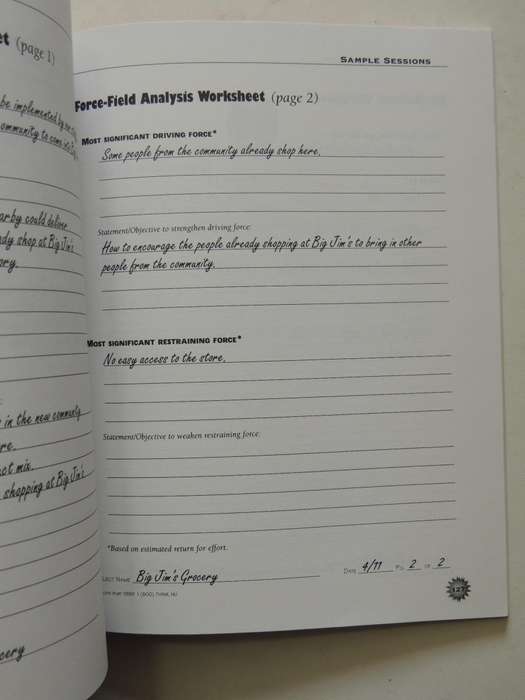 et (page 1)
be implemented by
ommunity to
arby could deliver
dy shop at Big Jim's
ery.
in the new community
re.
ct mix.
shopping at Big Jim's
cery
SAMPLE SESSIONS
Force-Field Analysis Worksheet (page 2)
MOST SIGNIFICANT DRIVING FORCE*
Some people from the community already shop here.
Statement/Objective to strengthen driving force:
How to encourage the people already shopping at Big Jim's to bring in other
people from the community.
MOST SIGNIFICANT RESTRAINING FORCE*
No easy access to the store.
Statement/Objective to weaken restraining force:
*Based on estimated return for effort.
Name Big Jim's Grocery Date 4/11 Pg. 2 of 2
127